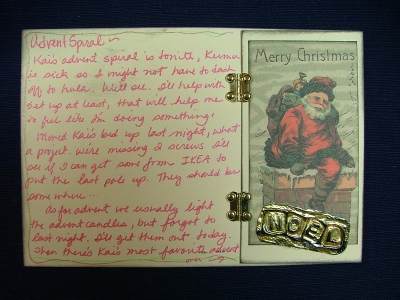 Advent Spiral ~
Kai's advent spiral is tonite, Keira
is sick so I might not have to dash
off to hula. We'll see. I'll help with
set up at least, that will help me
to feel like I'm doing something.
Moved Kai's bed up last night, what
a project we're missing 2 screws I'll
see if I can get some from IKEA to
put the last pole up. They should be
some where...
as for advent we usually light
the advent candles, but forgot to
last night. I'll get them out today.
Then there's Kai's most favorite advent
over →
Merry Christmas
NOEL